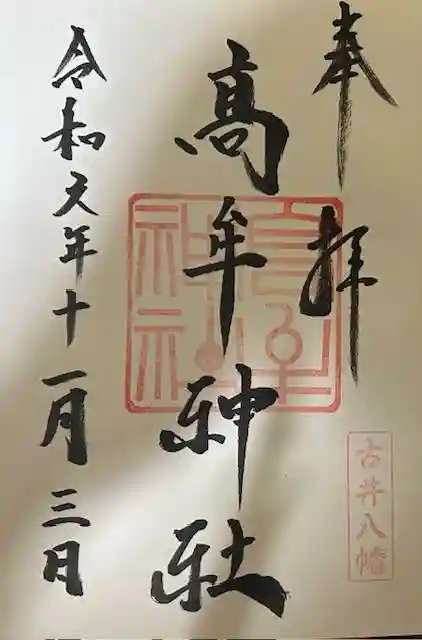 奉拝
髙牟神社
古井八幡
令和元年十一月三日